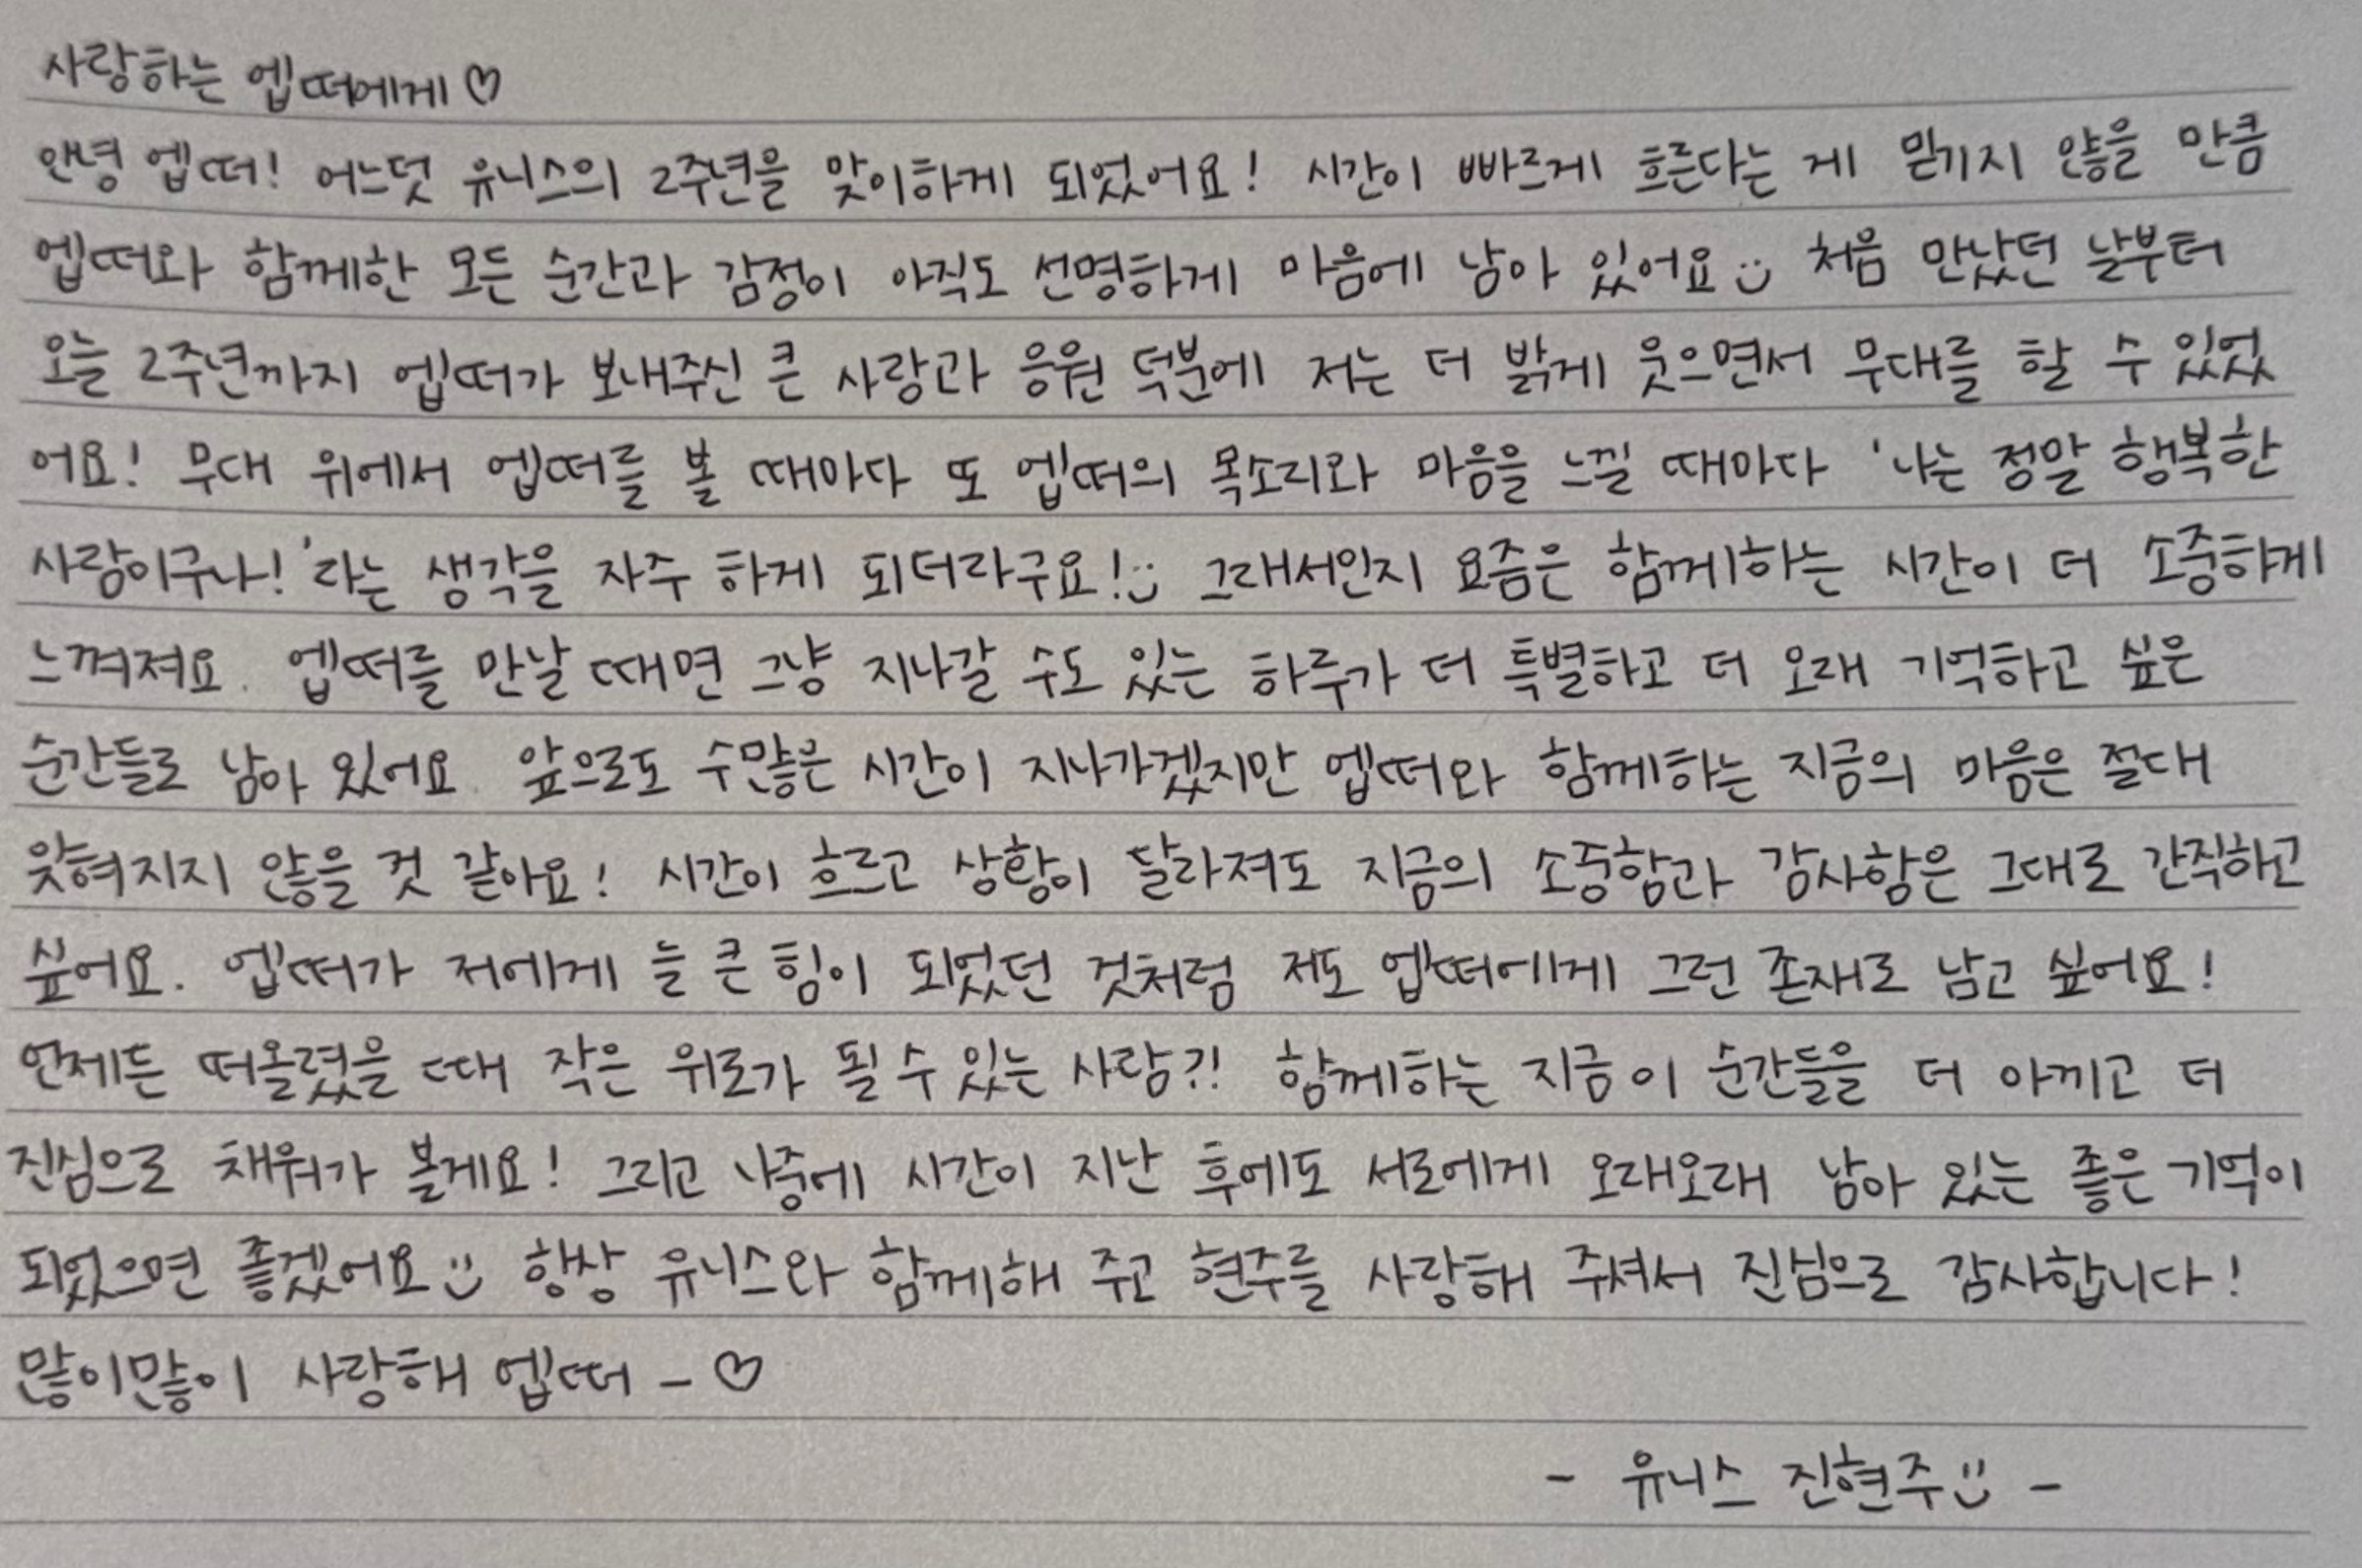 사랑하는 엡떠에게♡
안녕 엡떠! 어느덧 유니스의 2주년을 맞이하게 되었어요! 시간이 빠르게 흐른다는 게 믿기지 않을 만큼
엡떠와 함께한 모든 순간과 감정이 아직도 선명하게 마음에 남아 있어요 :) 처음 만났던 날부터
오늘 2주년까지 엡떠가 보내주신 큰 사랑과 응원 덕분에 저는 더 밝게 웃으면서 무대를 할 수 있었
어요! 무대 위에서 엡떠를 볼 때마다 또 엡떠의 목소리와 마음을 느낄 때마다 '나는 정말 행복한
사람이구나!'라는 생각을 자주 하게 되더라구요! :) 그래서인지 요즘은 함께하는 시간이 더 소중하게
느껴져요. 엡떠를 만날 때면 그냥 지나갈 수도 있는 하루가 더 특별하고 더 오래 기억하고 싶은
순간들로 남아 있어요. 앞으로도 수많은 시간이 지나가겠지만 엡떠와 함께하는 지금의 마음은 절대
잊혀지지 않을 것 같아요! 시간이 흐르고 상황이 달라져도 지금의 소중함과 감사함은 그대로 간직하고
싶어요. 엡떠가 저에게 늘 큰 힘이 되었던 것처럼 저도 엡떠에게 그런 존재로 남고 싶어요!
언제든 떠올렸을 때 작은 위로가 될 수 있는 사람?! 함께하는 지금 이 순간들을 더 아끼고 더
진심으로 채워가 볼게요! 그리고 나중에 시간이 지난 후에도 서로에게 오래오래 남아 있는 좋은 기억이
되었으면 좋겠어요 :) 항상 유니스와 함께해 주고 현주를 사랑해 주셔서 진심으로 감사합니다!
많이많이 사랑해 엡떠 - ♡
- 유니스 진현주 :) -